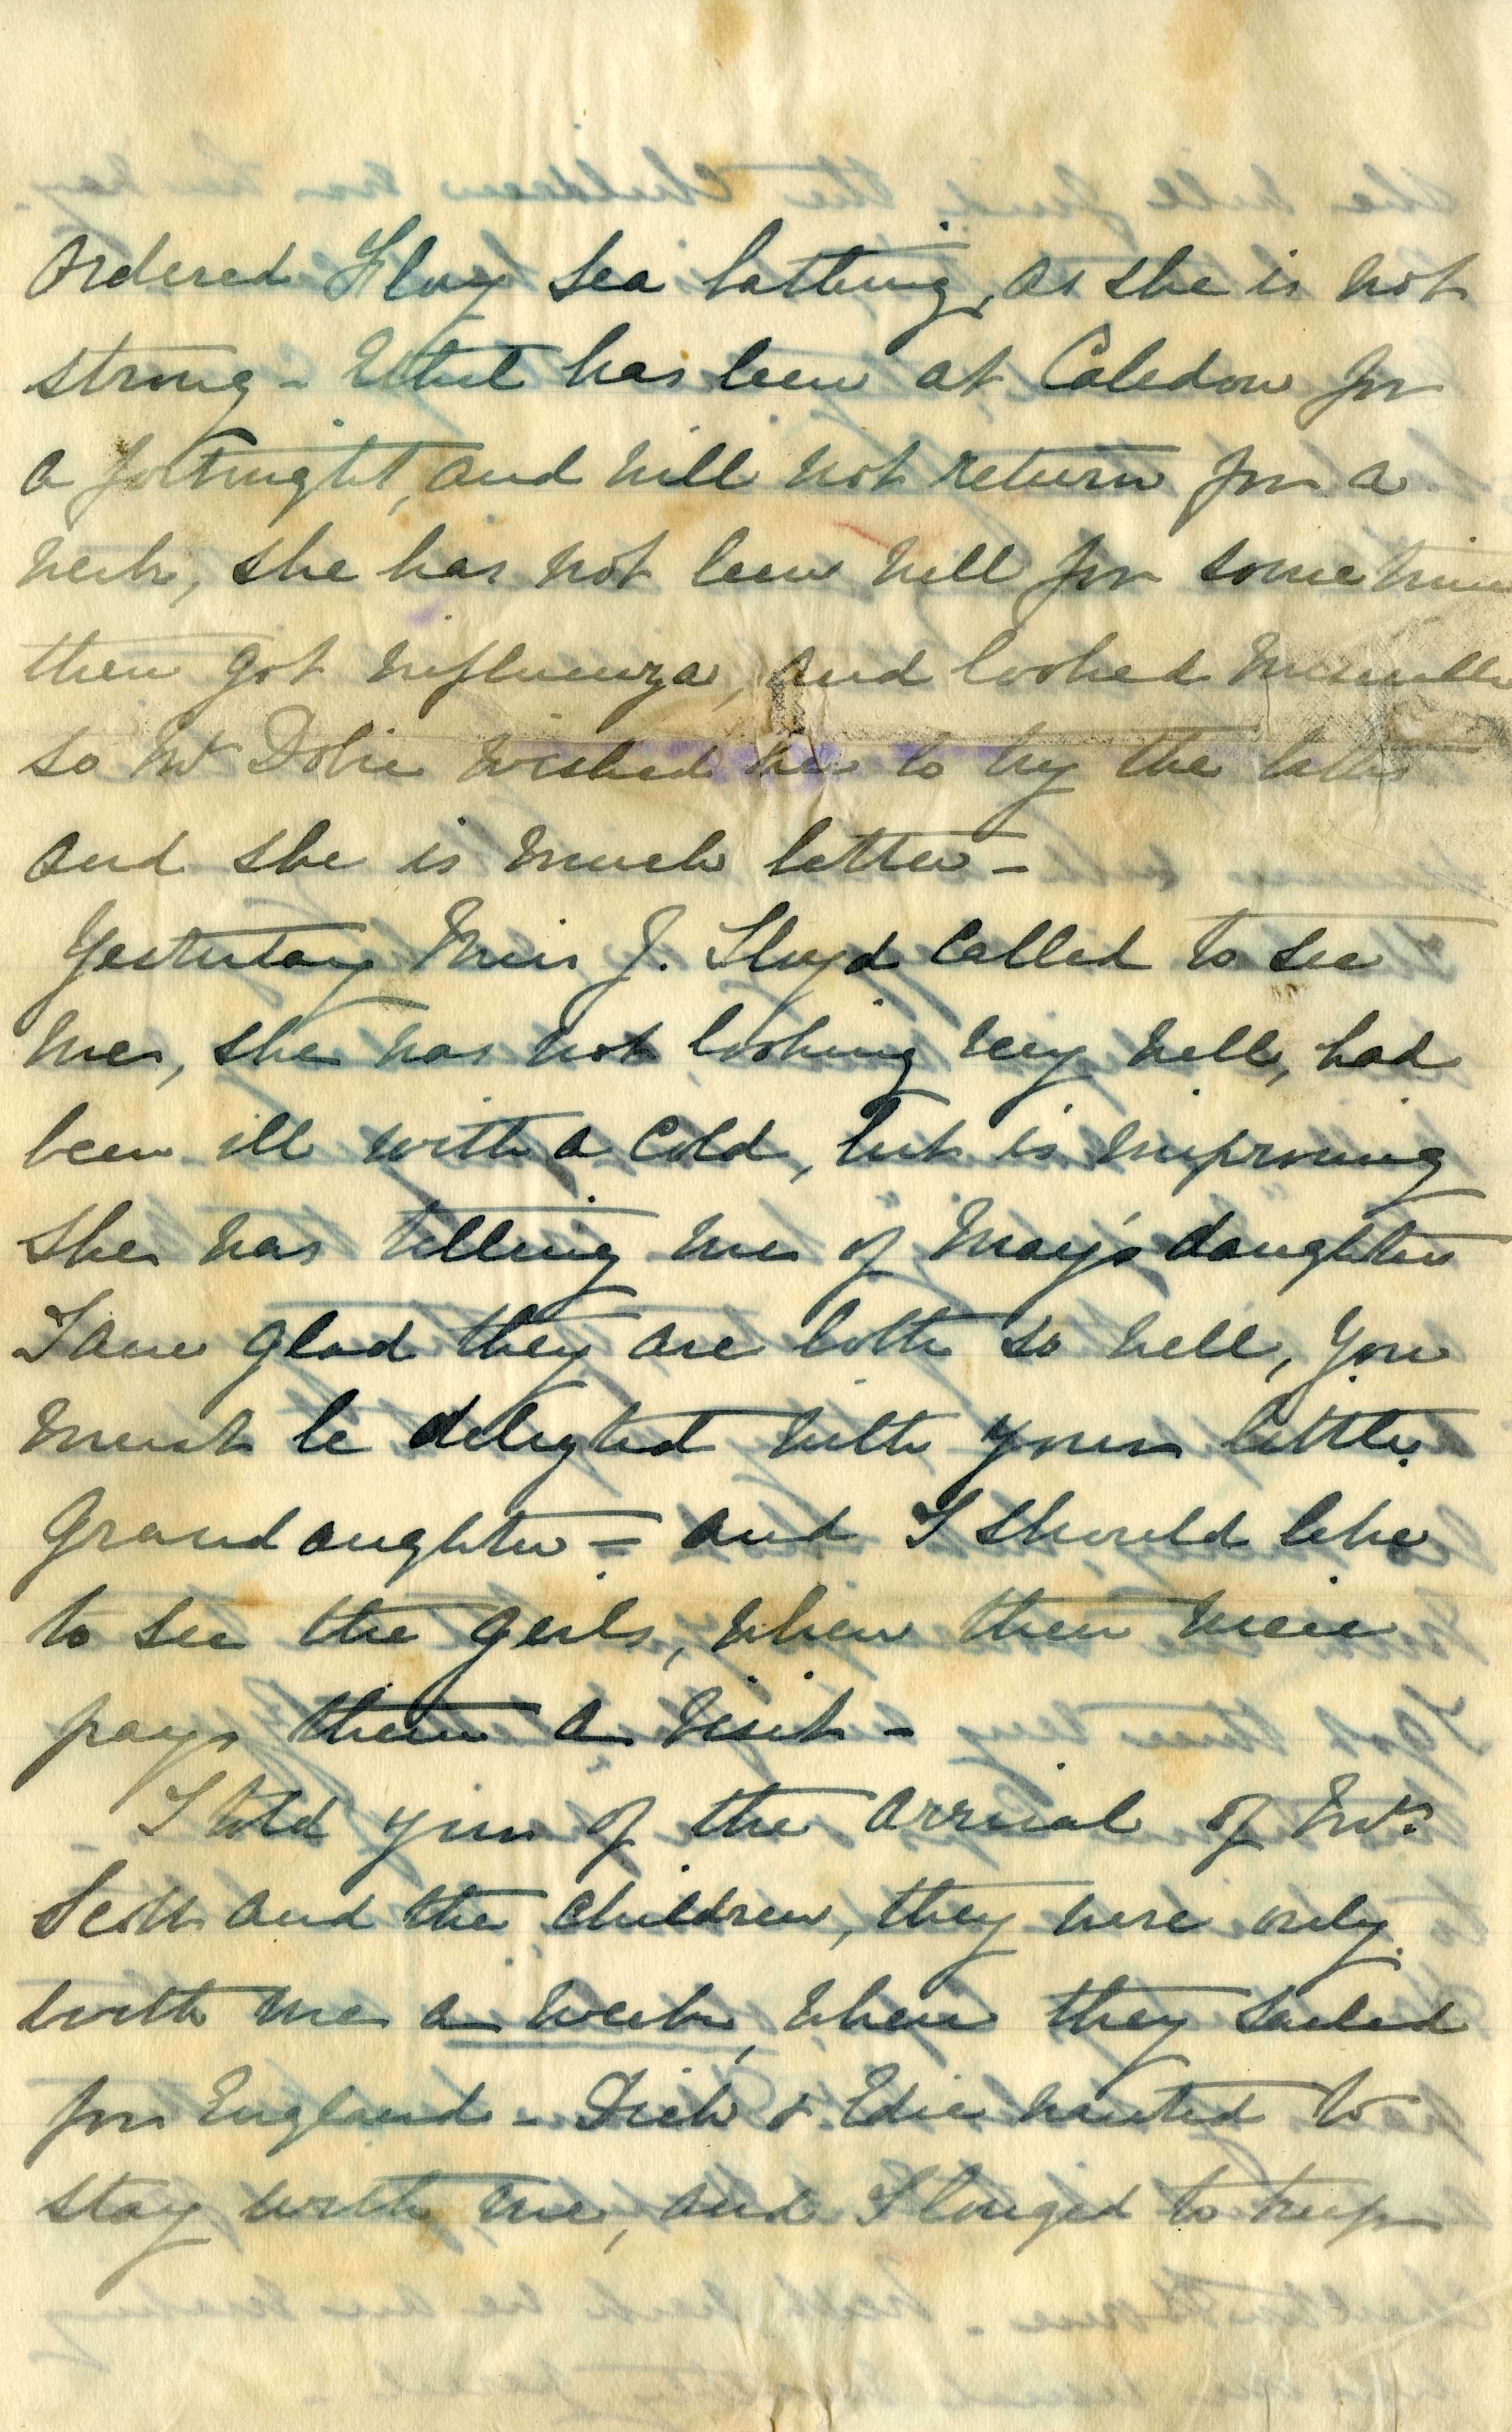 ordered Floy sea bathing, as she is not
strong - Ethel has been at Caledon for
a fortnight, and will not return for a
week, she has not been well for some time
then got influenza, and looked miserable
so Mr Dobie wished her to try the baths
and she is much better -
Yesterday Miss J. Lloyd called to see
me, she was not looking very well, had
been ill with a cold, but is improving
She was telling me of May's daughter
I am glad they are both so well, you
must be delighted with your little
Grandaughter = and I should like
to see the girls, when their niece
pays them a visit -
I told you of the arrival of Mrs.
Scott and the children, they were only
with me a week, when they sailed
for England - Dick & Edie wanted to
stay with me, and I longed to keep